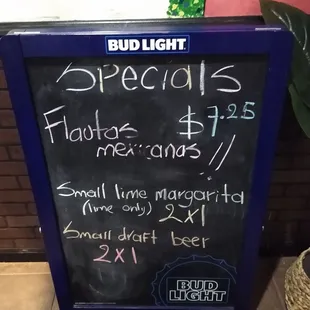 BUD LIGHT
Specials
Flautas $7.25
mexicanas //
Small lime margarita
(lime only) 2x1
Small draft beer
2x1
BUD
LIGHT